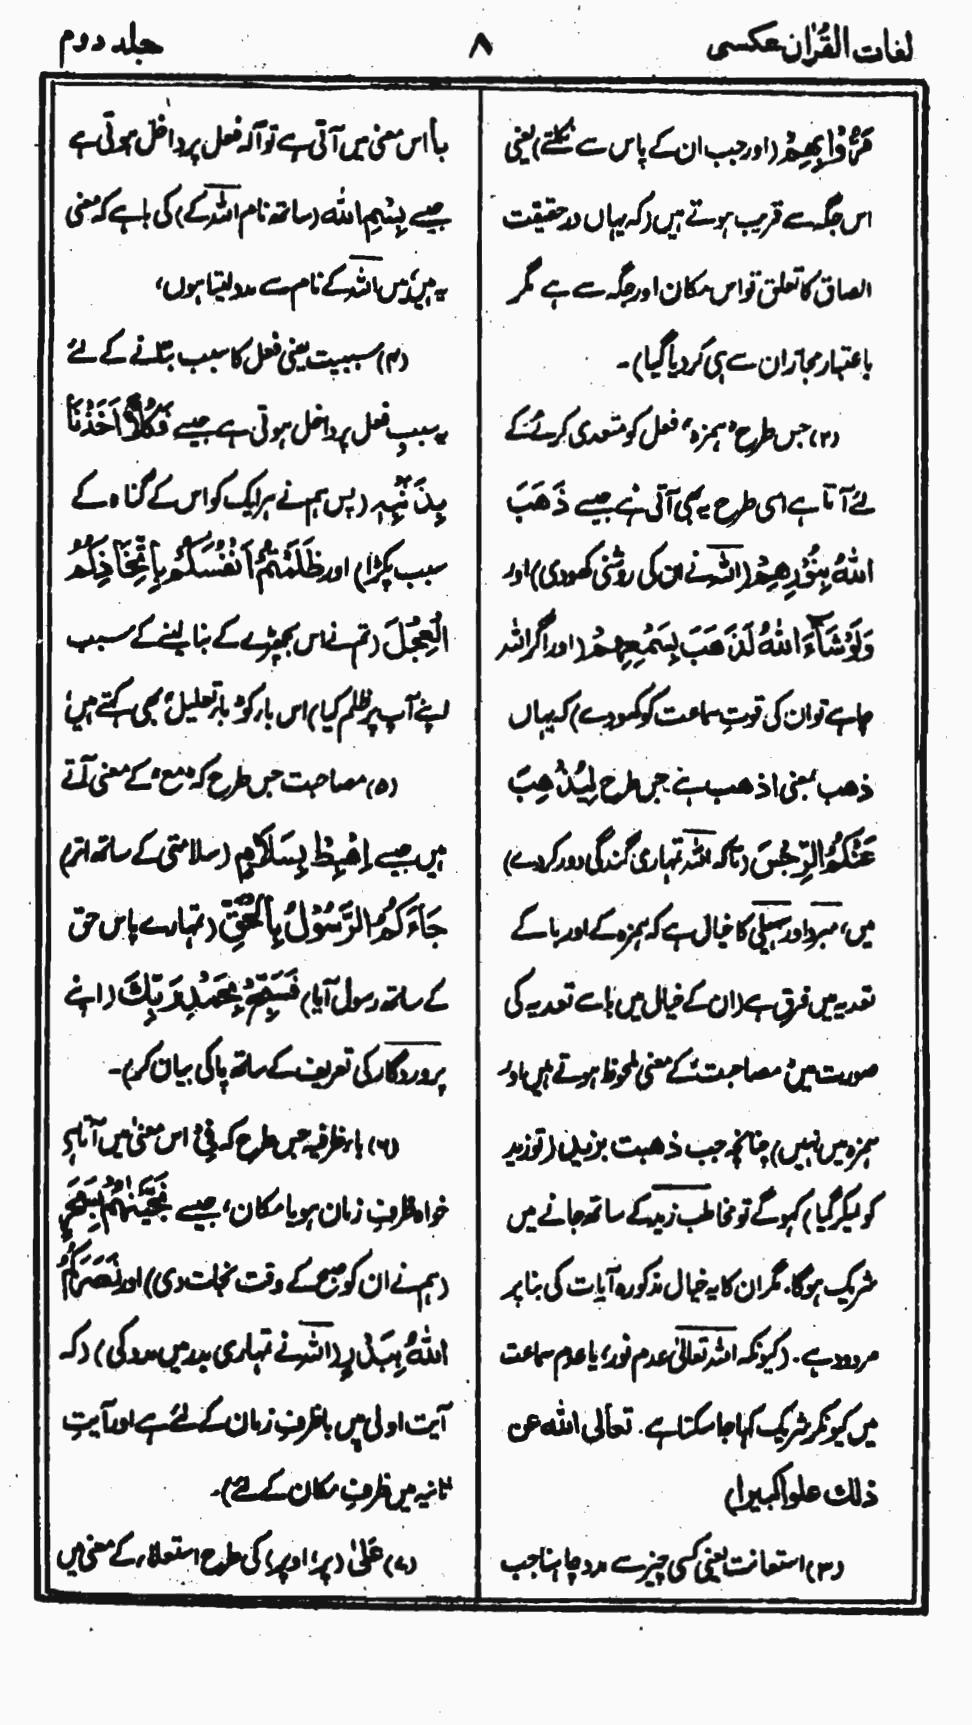 لغات القرآن عکسی
۸
جلد دوم
مَرُّوْا بِهِمْ (اور جب ان کے پاس سے نکلتے) یعنی
اس جگہ سے قریب ہوتے ہیں (کہ یہاں در حقیقت
الصاق کا تعلق تو اس مکان اور جگہ سے ہے مگر
باعتبار مجاز ان سے ہی کر دیا گیا)۔
(۲) جس طرح "ہمزہ" فعل کو متعدی کرنے کے
لئے آتا ہے اسی طرح یہ بھی آتی ہے جیسے ذَهَبَ
اللهُ بِنُوْرِهِمْ (اللہ نے ان کی روشنی کھو دی) اور
وَلَوْ شَآءَ اللهُ لَذَهَبَ بِسَمْعِهِمْ (اور اگر اللہ
چاہے تو ان کی قوتِ سماعت کو کھو دے) کہ یہاں
ذهب بمعنی اذهب ہے جس طرح لِيُذْهِبَ
عَنْكُمُ الرِّجْسَ (تاکہ اللہ تمہاری گندگی دور کر دے)
میں، مبرد اور سہیلی کا خیال ہے کہ ہمزہ کے اور با کے
تعدیہ میں فرق ہے (ان کے خیال میں بائے تعدیہ کی
صورت میں مصاحبت کے معنی ملحوظ ہوتے ہیں اور
ہمزہ میں نہیں) چنانچہ جب ذهبت بزید (تو زید
کو لیکر گیا) کہو گے تو مخاطب زید کے ساتھ جانے میں
شریک ہوگا۔ مگر ان کا یہ خیال مذکورہ آیات کی بنا پر
مردود ہے۔ (کیونکہ اللہ تعالیٰ عدم نور، یا عدم سماعت
میں کیونکر شریک کہا جا سکتا ہے۔ تعالى الله عن
ذلك علوا كبيرا)
(۳) استعانت یعنی کسی چیز سے مدد چاہنا جب
با اس معنی میں آتی ہے تو آلہ فعل پر داخل ہوتی ہے
جیسے بِسْمِ اللهِ (ساتھ نام اللہ کے) کی با ہے کہ معنی
یہ ہیں "میں اللہ کے نام سے مدد لیتا ہوں"
(۴) سببیت یعنی فعل کا سبب بتلانے کے لئے
یہ سببِ فعل پر داخل ہوتی ہے جیسے فَكُلًّا اَخَذْنَا
بِذَنْۢبِهٖ (پس ہم نے ہر ایک کو اس کے گناہ کے
سبب پکڑا) اور ظَلَمْتُمْ اَنْفُسَكُمْ بِاتِّخَاذِكُمُ
الْعِجْلَ (تم نے اس بچھڑے کے بنا لینے کے سبب
اپنے آپ پر ظلم کیا) اس با کو "بار تعلیل" بھی کہتے ہیں
(۵) مصاحبت جس طرح کہ "مع" کے معنی آتے
ہیں جیسے اِهْبِطْ بِسَلَامٍ (سلامتی کے ساتھ اتر)
جَآءَكُمُ الرَّسُوْلُ بِالْحَقِّ (تمہارے پاس حق
کے ساتھ رسول آیا) فَسَبِّحْ بِحَمْدِ رَبِّكَ (اپنے
پروردگار کی تعریف کے ساتھ پاکی بیان کر)۔
(۶) باء ظرفیہ جس طرح کہ فِیْ اس معنی میں آتا ہے
خواہ ظرفِ زمان ہو یا مکان، جیسے نَجَّيْنٰهُمْ بِسَحَرٍ
(ہم نے ان کو صبح کے وقت نجات دی) اور نَصَرَكُمُ
اللهُ بِبَدْرٍ (اللہ نے تمہاری بدر میں مدد کی) (کہ
آیت اولیٰ میں با ظرفِ زمان کے لئے ہے اور آیتِ
ثانیہ میں ظرفِ مکان کے لئے)۔
(۷) عَلٰی (پر، اوپر) کی طرح استعلاء کے معنی میں